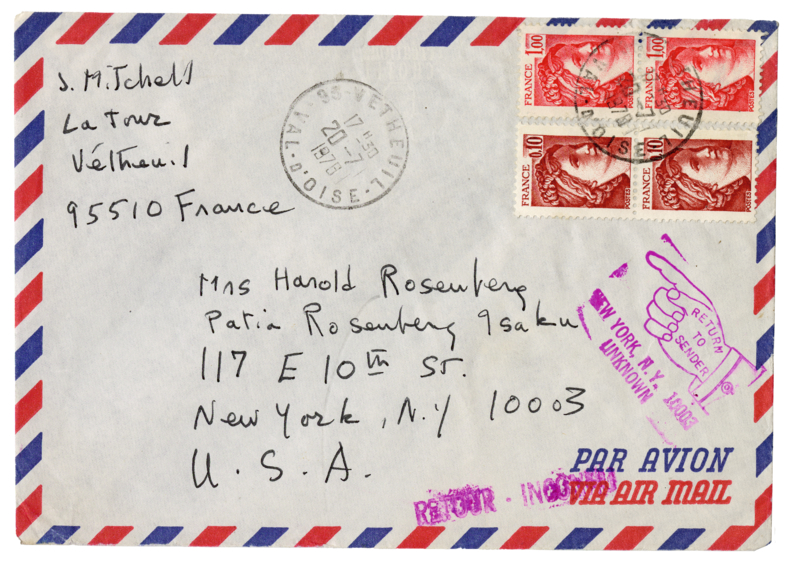 J. Mitchell
La Tour
Vétheuil
95510 France
95-VETHEUIL
17 H30
20-7
1978
VAL-D'OISE
1,00
FRANCE
POSTES
1,00
FRANCE
POSTES
0,10
FRANCE
POSTES
0,10
FRANCE
POSTES
Mrs Harold Rosenberg
Patia Rosenberg Isaku
117 E 10th St.
New York, N.Y 10003
U.S.A.
RETURN
TO
SENDER
NEW YORK, N.Y. 10003
UNKNOWN
PAR AVION
VIA AIR MAIL
RETOUR - INCONNU